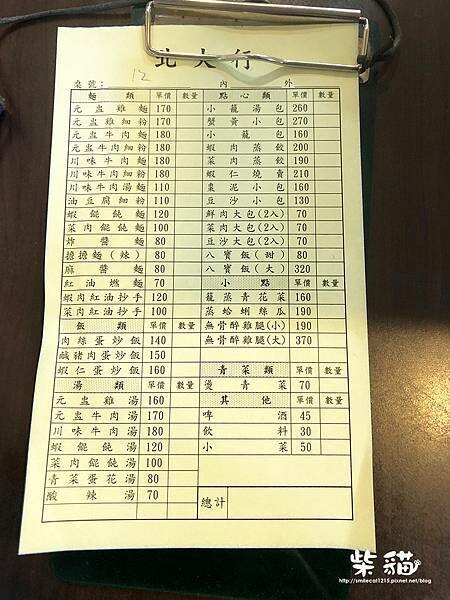 北大行
桌號: 12 內 外
麵類 單價 數量
元盅雞麵 170
元盅雞細粉 170
元盅牛肉麵 180
元盅牛肉細粉 180
川味牛肉麵 180
川味牛肉細粉 180
川味牛肉湯麵 110
油豆腐細粉 110
蝦餛飩麵 120
菜肉餛飩麵 100
炸醬麵 80
擔擔麵(辣) 80
麻醬麵 80
紅油燃麵 70
蝦肉紅油抄手 120
菜肉紅油抄手 100
飯類 單價 數量
肉絲蛋炒飯 140
鹹豬肉蛋炒飯 150
蝦仁蛋炒飯 160
湯類 單價 數量
元盅雞湯 160
元盅牛肉湯 170
川味牛肉湯 180
蝦餛飩湯 120
菜肉餛飩湯 100
青菜蛋花湯 80
酸辣湯 70
點心類 單價 數量
小籠湯包 260
蟹黃小包 270
小籠包 160
蝦肉蒸餃 200
菜肉蒸餃 190
蝦仁燒賣 210
棗泥小包 160
豆沙小包 130
鮮肉大包(2入) 70
菜肉大包(2入) 70
豆沙大包(2入) 70
八寶飯(甜) 80
八寶飯(大) 320
小點 單價 數量
籠蒸青花菜 160
蒸蛤蜊絲瓜 190
無骨醉雞腿(小) 190
無骨醉雞腿(大) 370
青菜類 單價 數量
燙青菜 70
其他 單價 數量
啤酒 45
飲料 30
小菜 50
總計
柴貓
http://smilecat1215.pixnet.net/blog